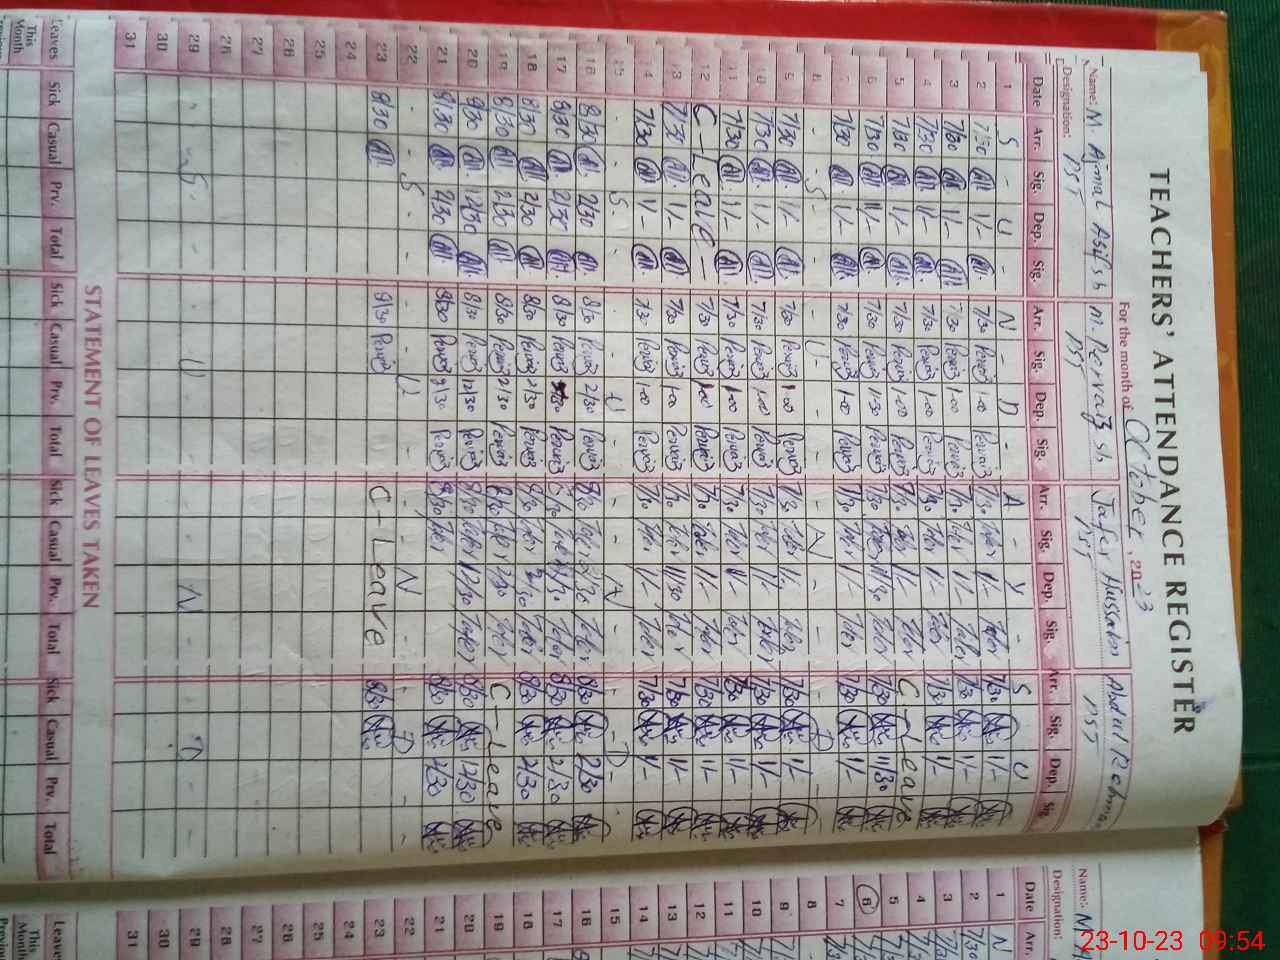 TEACHERS' ATTENDANCE REGISTER
For the month of October, 2023
Name: M. Ajmal Asif s/o M. Pervaiz s/o Jafer Hussain Abdul Rehman
Designation: PST PST PST PST
Date Arr. Sig. Dep. Sig. Arr. Sig. Dep. Sig. Arr. Sig. Dep. Sig. Arr. Sig. Dep. Sig.
1 S - U - N - D - A - Y - S U
2 7/30 1/- 7/30 Pervaiz 1-00 Pervaiz 7/30 Jafer 1/- Jafer 7/30 1/-
3 7/30 1/- 7/30 Pervaiz 1-00 Pervaiz 7/30 Jafer 1/- Jafer 7/30 1/-
4 7/30 1/- 7/30 Pervaiz 1-00 Pervaiz 7/30 Jafer 1/- Jafer 7/30 1/-
5 7/30 1/- 7/30 Pervaiz 1-00 Pervaiz 7/30 Jafer 1/- Jafer C-Leave
6 7/30 11/- 7/30 Pervaiz 11-30 Pervaiz 7/30 Jafer 11/30 Jafer 7/30 11/30
7 7/30 1/- 7/30 Pervaiz 1-00 Pervaiz 7/30 Jafer 1/- Jafer 7/30 1/-
8 - S - U - N - D -
9 7/30 1/- 7/30 Pervaiz 1-00 Pervaiz 7/30 Jafer 1/- Jafer 7/30 1/-
10 7/30 1/- 7/30 Pervaiz 1-00 Pervaiz 7/30 Jafer 1/- Jafer 7/30 1/-
11 7/30 1/- 7/30 Pervaiz 1-00 Pervaiz 7/30 Jafer 1/- Jafer 7/30 1/-
12 C-Leave- 7/30 Pervaiz 1-00 Pervaiz 7/30 Jafer 1/- Jafer 7/30 1/-
13 7/30 1/- 7/30 Pervaiz 1-00 Pervaiz 7/30 Jafer 11/30 Jafer 7/30 1/-
14 7/30 1/- 7/30 Pervaiz 1-00 Pervaiz 7/30 Jafer 1/- Jafer 7/30 1/-
15 - S - U - N - D -
16 8/30 2/30 8/30 Pervaiz 2/30 Pervaiz 8/30 Jafer 2/30 Jafer 8/30 2/30
17 8/30 2/30 8/30 Pervaiz Pervaiz 8/30 Jafer Jafer 8/30 2/30
18 8/30 2/30 8/30 Pervaiz 2/30 Pervaiz 8/30 Jafer 2/30 Jafer 8/30 2/30
19 8/30 2/30 8/30 Pervaiz 2/30 Pervaiz 8/30 Jafer 2/30 Jafer C-Leave
20 8/30 12/30 8/30 Pervaiz 12/30 Pervaiz 8/30 Jafer 12/30 Jafer 8/30 12/30
21 8/30 2/30 8/30 Pervaiz 2/30 Pervaiz 8/30 Jafer 8/30 2/30
22 - S - U - N - D -
23 8/30 8/30 Pervaiz C-Leave 8/30
24
25
26
27
28
29 - S - U - N - D -
30
31
STATEMENT OF LEAVES TAKEN
Leaves Sick Casual Prv. Total Sick Casual Prv. Total Sick Casual Prv. Total Sick Casual Prv. Total
This Month
Previous
Name:- M
Designation:
Date Arr.
1 N
2 7/30
3
4
5
6
7
8
9
10
11
12
13
14
15
16
17
18
19
20
21
22
23
24
25
26
27
28
29
30
31
Leaves
This Month
Previous
23-10-23 09:54